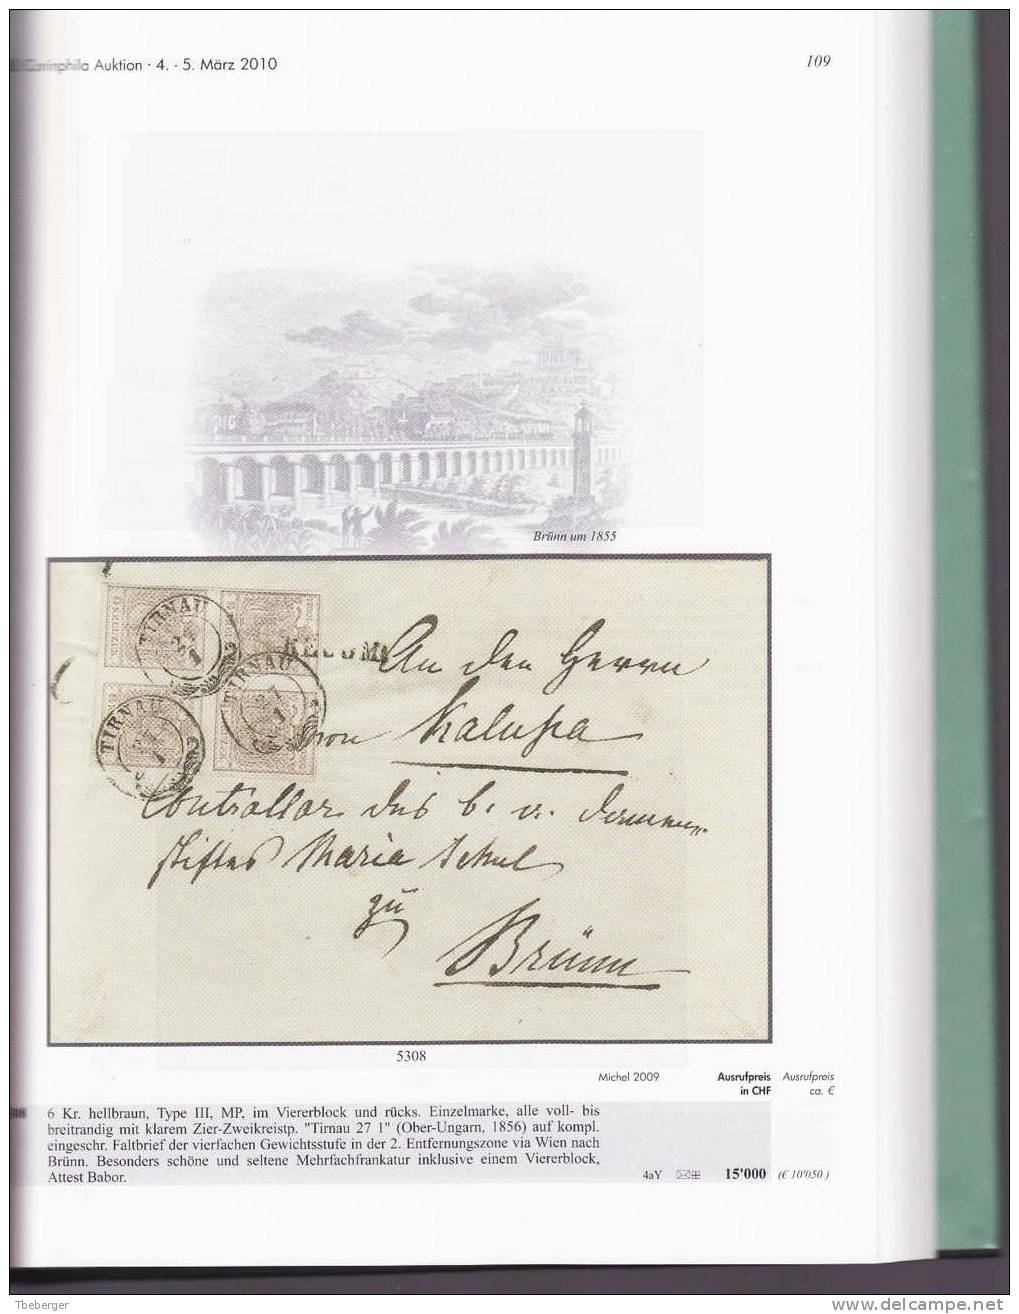 Corinphila Auktion · 4. - 5. März 2010
109
Brünn um 1855
TIRNAU
TIRNAU
TIRNAU
RECOM
An den Herrn
von Kalupa
Controllor des
stiftes Maria Schul
zu
Brünn
5308
Michel 2009 Ausrufpreis Ausrufpreis
in CHF ca. €
6 Kr. hellbraun, Type III, MP, im Viererblock und rücks. Einzelmarke, alle voll- bis
breitrandig mit klarem Zier-Zweikreistp. "Tirnau 27 1" (Ober-Ungarn, 1856) auf kompl.
eingeschr. Faltbrief der vierfachen Gewichtsstufe in der 2. Entfernungszone via Wien nach
Brünn. Besonders schöne und seltene Mehrfachfrankatur inklusive einem Viererblock,
Attest Babor.
4aY 15'000 (€ 10'050)
Tbeberger
delcampe.net